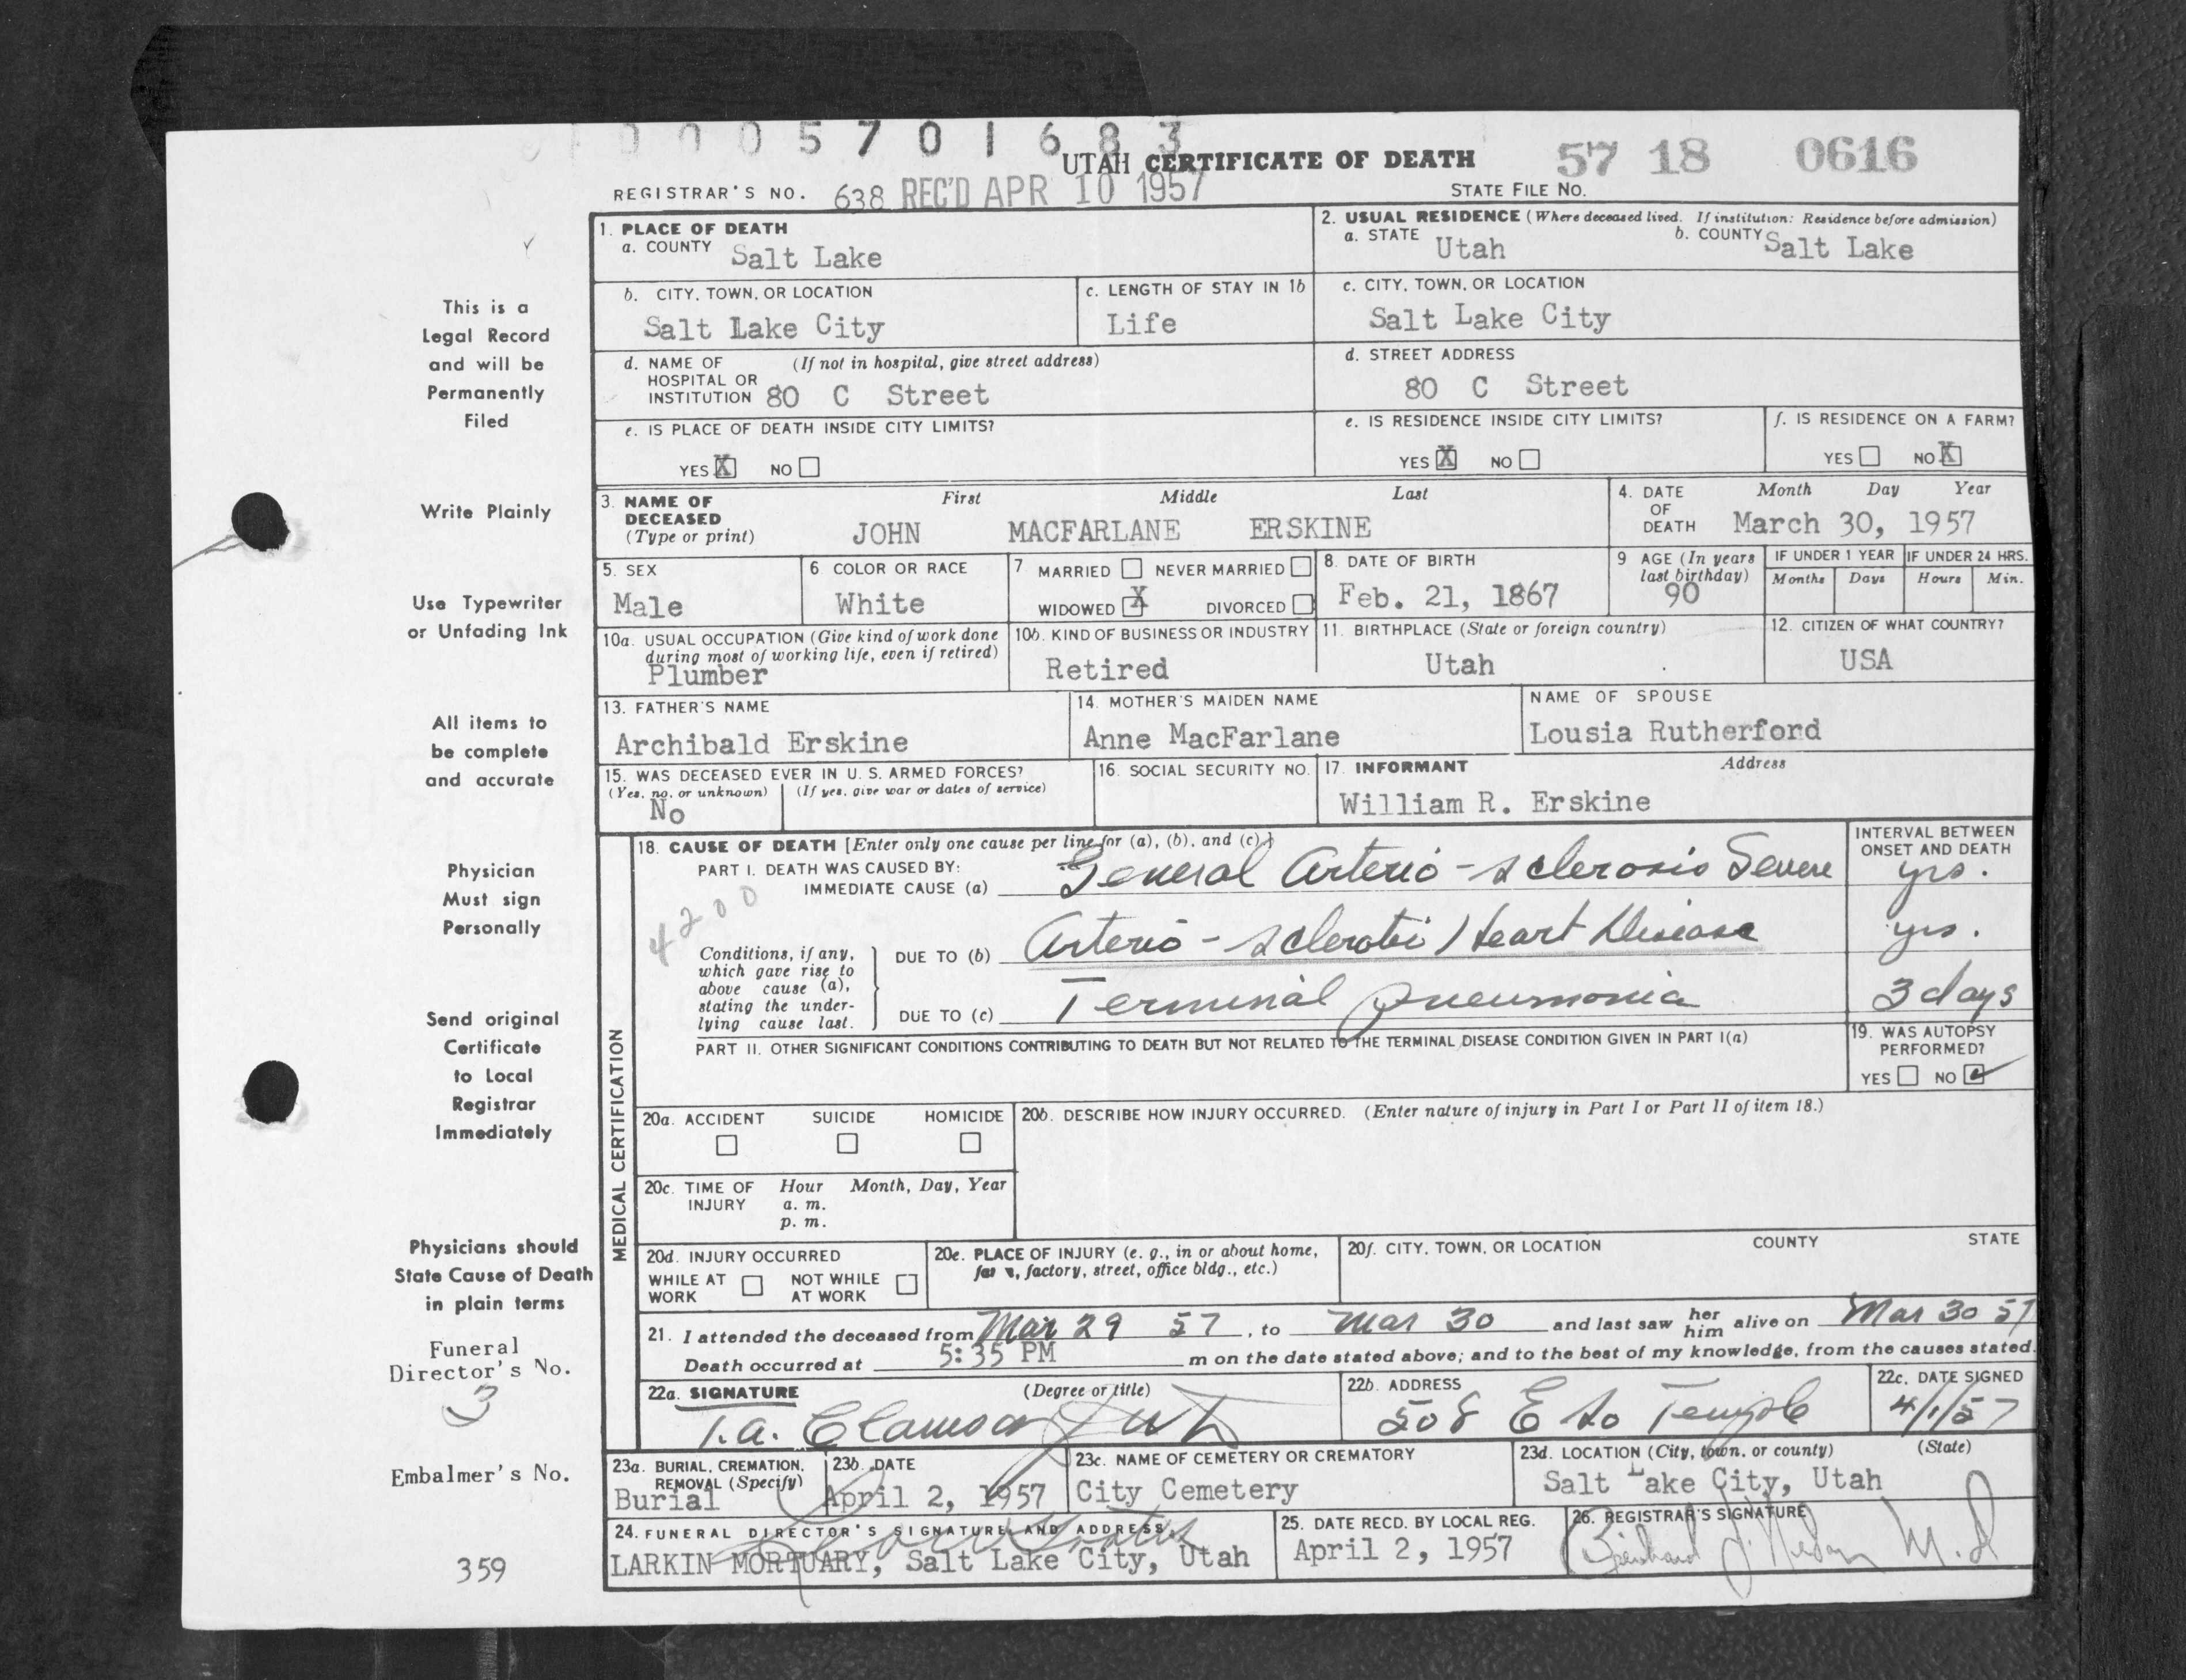 0005701683
UTAH CERTIFICATE OF DEATH 57 18 0616
REGISTRAR'S NO. 638 REC'D APR 10 1957 STATE FILE NO.
1. PLACE OF DEATH
a. COUNTY Salt Lake
2. USUAL RESIDENCE (Where deceased lived. If institution: Residence before admission)
a. STATE Utah b. COUNTY Salt Lake
b. CITY, TOWN, OR LOCATION
Salt Lake City
c. LENGTH OF STAY IN 1b
Life
c. CITY, TOWN, OR LOCATION
Salt Lake City
d. NAME OF (If not in hospital, give street address)
HOSPITAL OR
INSTITUTION 80 C Street
d. STREET ADDRESS
80 C Street
e. IS PLACE OF DEATH INSIDE CITY LIMITS?
YES X NO
e. IS RESIDENCE INSIDE CITY LIMITS?
YES X NO
f. IS RESIDENCE ON A FARM?
YES NO X
3. NAME OF DECEASED (Type or print)
First Middle Last
JOHN MACFARLANE ERSKINE
4. DATE OF DEATH
Month Day Year
March 30, 1957
5. SEX
Male
6. COLOR OR RACE
White
7 MARRIED NEVER MARRIED
WIDOWED X DIVORCED
8. DATE OF BIRTH
Feb. 21, 1867
9 AGE (In years
last birthday)
90
IF UNDER 1 YEAR
Months Days
IF UNDER 24 HRS.
Hours Min.
10a. USUAL OCCUPATION (Give kind of work done
during most of working life, even if retired)
Plumber
10b. KIND OF BUSINESS OR INDUSTRY
Retired
11. BIRTHPLACE (State or foreign country)
Utah
12. CITIZEN OF WHAT COUNTRY?
USA
13. FATHER'S NAME
Archibald Erskine
14. MOTHER'S MAIDEN NAME
Anne MacFarlane
NAME OF SPOUSE
Lousia Rutherford
15. WAS DECEASED EVER IN U. S. ARMED FORCES?
(Yes, no, or unknown) (If yes, give war or dates of service)
No
16. SOCIAL SECURITY NO.
17. INFORMANT Address
William R. Erskine
MEDICAL CERTIFICATION
18. CAUSE OF DEATH [Enter only one cause per line for (a), (b), and (c).]
PART I. DEATH WAS CAUSED BY:
IMMEDIATE CAUSE (a) General Arterio-sclerosis Severe
4200
Conditions, if any,
which gave rise to
above cause (a),
stating the under-
lying cause last.
DUE TO (b) Arterio-sclerotic Heart Disease
DUE TO (c) Terminal pneumonia
INTERVAL BETWEEN
ONSET AND DEATH
yrs.
yrs.
3 days
PART II. OTHER SIGNIFICANT CONDITIONS CONTRIBUTING TO DEATH BUT NOT RELATED TO THE TERMINAL DISEASE CONDITION GIVEN IN PART I(a)
19. WAS AUTOPSY
PERFORMED?
YES NO ✓
20a. ACCIDENT SUICIDE HOMICIDE
20b. DESCRIBE HOW INJURY OCCURRED. (Enter nature of injury in Part I or Part II of item 18.)
20c. TIME OF INJURY
Hour Month, Day, Year
a. m.
p. m.
20d. INJURY OCCURRED
WHILE AT WORK NOT WHILE AT WORK
20e. PLACE OF INJURY (e. g., in or about home,
farm, factory, street, office bldg., etc.)
20f. CITY, TOWN, OR LOCATION COUNTY STATE
21. I attended the deceased from Mar 29 57, to Mar 30 and last saw her him alive on Mar 30 57
Death occurred at 5:35 PM m on the date stated above; and to the best of my knowledge, from the causes stated.
22a. SIGNATURE (Degree or title)
T. A. Clawson
22b. ADDRESS
508 E So Temple
22c. DATE SIGNED
4/1/57
23a. BURIAL, CREMATION,
REMOVAL (Specify)
Burial
23b. DATE
April 2, 1957
23c. NAME OF CEMETERY OR CREMATORY
City Cemetery
23d. LOCATION (City, town, or county) (State)
Salt Lake City, Utah
24. FUNERAL DIRECTOR'S SIGNATURE AND ADDRESS
LARKIN MORTUARY, Salt Lake City, Utah
25. DATE RECD. BY LOCAL REG.
April 2, 1957
26. REGISTRAR'S SIGNATURE
M.D
This is a
Legal Record
and will be
Permanently
Filed
Write Plainly
Use Typewriter
or Unfading Ink
All items to
be complete
and accurate
Physician
Must sign
Personally
Send original
Certificate
to Local
Registrar
Immediately
Physicians should
State Cause of Death
in plain terms
Funeral
Director's No.
3
Embalmer's No.
359